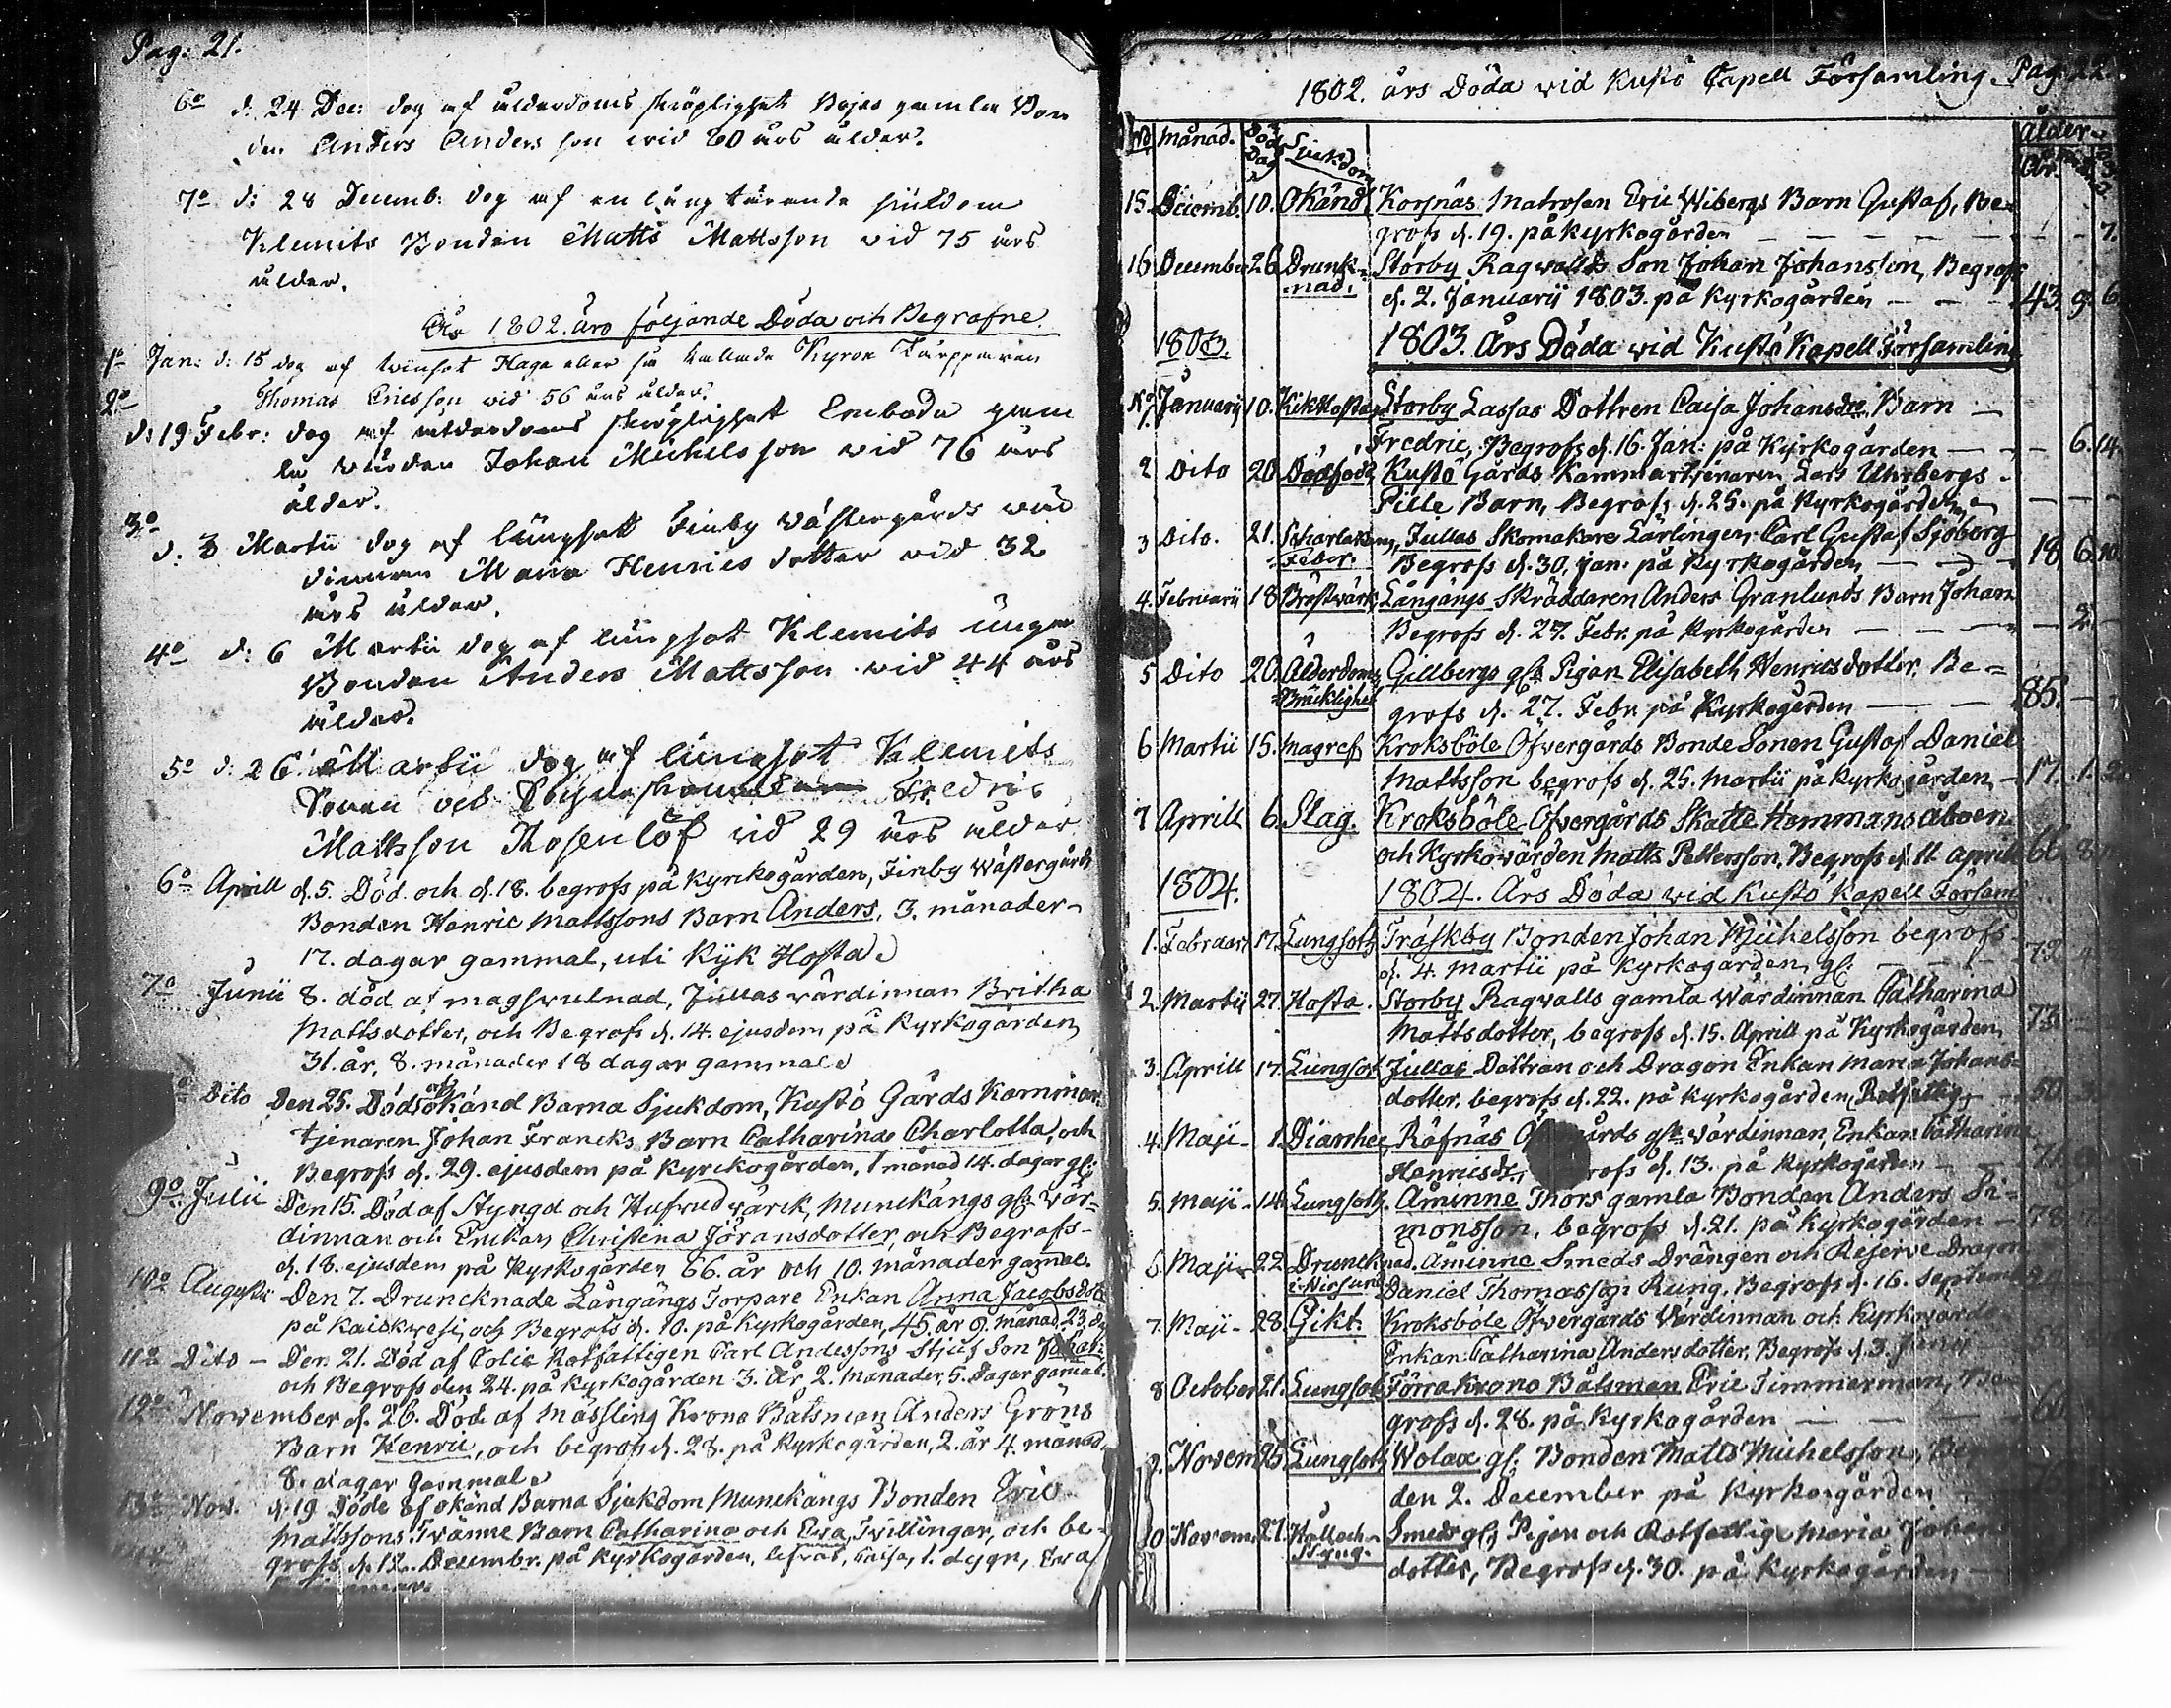 Pag: 21.
6o d. 24 Dec: dog af ålderdoms skröplighet Bojas gamla Bon
den Anders Andersson wid 80 års ålder.
7o d: 28 Decemb: dog af en långtärande siukdom
Klemits Bonden Matts Mattsson wid 75 års
ålder.
År 1802. äro följande Döda och Begrafne.
1o Jan: d: 15 dog af twinsot Haga eller så kallade Kyron
Thomas Ericsson wid 56 års ålder.
2o d: 19 Febr: dog af ålderdoms skröplighet Emboda gam
la wärden Johan Michelsson wid 76 års
ålder.
3o d. 3 Martii dog af lungsott Finby Västergårds wär
dinnan Maria Henrics dotter wid 32
års ålder.
4o d: 6 Martii dog af lungsot Klemits unga
Bonden Anders Mattsson wid 44 års
ålder.
5o d: 26 Martii dog af lungsot Klemits
Sonen och Fredric
Mattsson Rosenlöf wid 29 års ålder
6o Aprill d. 5. Död och d. 18. begrofs på kyrckogården, Finby Wästergårds
Bonden Henric Mattssons Barn Anders, 3. månader
17. dagar gammal, uti Kyk Hosta
7o Junii 8. död af magswulnad, Jullas wärdinnan Britha
Mattsdotter, och Begrofs d. 14. ejusdem på Kyrkogården,
31. år, 8. månader 18 dagar gammal
Dito Den 25. Död af okänd Barna Sjukdom, Kustö Gårds Kammar-
tjenaren Johan Francks Barn Catharina Charlotta, och
Begrofs d. 29. ejusdem på kyrckogården, 1 månad 14. dagar gl:
9o Julii Den 15. Död af Styngd och Hufvudwärck, Munckängs gla Wär-
dinnan och Enckan Christina Jöransdotter, och Begrofs-
d. 18. ejusdem på Kyrkogården 66. år och 10. månader gamal.
10o Augusti Den 7. Druncknade Långängs Torpare Enkan Anna Jacobsdott
på och Begrofs d. 10. på Kyrkogården, 45. år 9. månad. 23. d.
11o Dito – Den 21. Död af Colic Rotfattigen Carl Anderssons Stjuf Son Johan:
och Begrofs den 24. på Kyrkogården 3. år 2. månader, 5. Dagar gamal.
12o November d. 26. Död af Mässling Krono Båtsman Anders Gröns
Barn Henric, och begrofs d. 28. på Kyrkogården, 2. år 4. månad.
8. dagar gammal
13o Nov. d. 19 Döde af okänd Barna Sjukdom Munckängs Bonden Eric
Mattssons Twänne Barn Catharina och Eva, Twillingar, och be-
grofs d. 12. Decembr. på Kyrkogården, lefvat, Caisa, 1. dygn, Eva
1802. års Döda wid Kustö Capell Församling. Pag: 22.
No Månad. Död Dag Siukdom Ålder
År.
15. Decemb. 10. Okänd. Korsnäs Matrosen Eric Wibergs Barn Gustaf, Be-
grofs d. 19. på Kyrkogården – – – 7.
16 December 26 Drunk- Storby Ragwalds Son Johan Johansson, Begrofs
nad. d. 2. Januarii 1803. på Kyrkogården – – – 43. 9. 6
1803. 1803. Års Döda wid Kustö Kapell Församling
No 1. Januarij 10. Kikhosta Storby Lassas Dottren Caisa Johansdrs Barn –
Fredric, Begrofs d. 16. Jan: på Kyrkogården – – 6. 14.
2 Dito 20. Dödfödd Kustö Gårds Kammartjenaren Lars Uhrbergs
Pille Barn, Begrofs d. 25. på Kyrkogården – – –
3 Dito. 21. Scharlakans, Jullas Skomakare Lärlingen Carl Gustaf Sjöberg
Feber. Begrofs d. 30. Jan. på Kyrkogården – – 18 6. 10.
4. Februarii 18 Bröstwärk, Långängs Skräddaren Anders Granlunds Barn Johan
Begrofs d. 27. Febr. på Kyrkogården – – – 2. –
5 Dito 20. Ålderdoms Gillbergs gla Pigan Elisabeth Henricsdotter, Be-
Bräcklighet grofs d. 27. Febr. på Kyrkogården – – 85. – –
6 Martii 15. Magref Kroksböle Öfvergårds Bonde Sonen Gustaf Daniel
Mattsson begrofs d. 25. Martii på Kyrkogården, – 17. 1. 2.
7 Aprill 6. Slag. Kroksböle Öfvergårds Skatte Hemmans Åboen
och Kyrkowärden Matts Pettersson, Begrofs d. 11. Aprill 66. 8
1804. 1804. Års Döda wid Kustö Kapell Försam
1. Februari 17. Lungsoth Träskby Bonden Johan Michelsson begrofs
d. 4. Martii på Kyrkogården gl: – – 72.
2. Martii 27. Hosta. Storby Ragvalls gamla Wärdinnan Catharina
Mattsdotter, begrofs d. 15. Aprill på Kyrkogården, 73.
3. Aprill 17. Lungsot Jullas Dottran och Dragon Enkan Maria Johans-
dotter, begrofs d. 22. på Kyrkogården, Rotfattig – 50.
4. Maji – 1. Diarrhee, Räfnäs gla wärdinnan, Enkan Catharina
Henricsdr, d. 13. på Kyrkogården –
5. Maji – 14. Lungsoth. Åminne Thors gamla Bonden Anders Si-
monsson, begrofs d. 21. på Kyrkogården – 78.
6. Maji – 22. Drunck nad. Åminne Smeds Drängen och Reserve Dragon
Daniel Thomasson Rung, Begrofs d. 16. September
7. Maji – 28. Gikt. Kroksböle Öfvergårds Värdinnan och Kyrkovärds
Enkan Catharina Andersdotter, Begrofs d. 3. Junii
8 October 21. Lungsot Förra Krono Båtsman Eric Timmerman, Be-
grofs d. 28. på Kyrkogården – – – 60
9. Novem 25. Lungsoth Wolax gl. Bonden Matts Michelsson, Be
den 2. December på Kyrkogården
10 Novem. 27. Håll och Smeds gla Pigan och Rotfattig Maria Johan
Styng. dotter, Begrofs d. 30. på Kyrkogården –